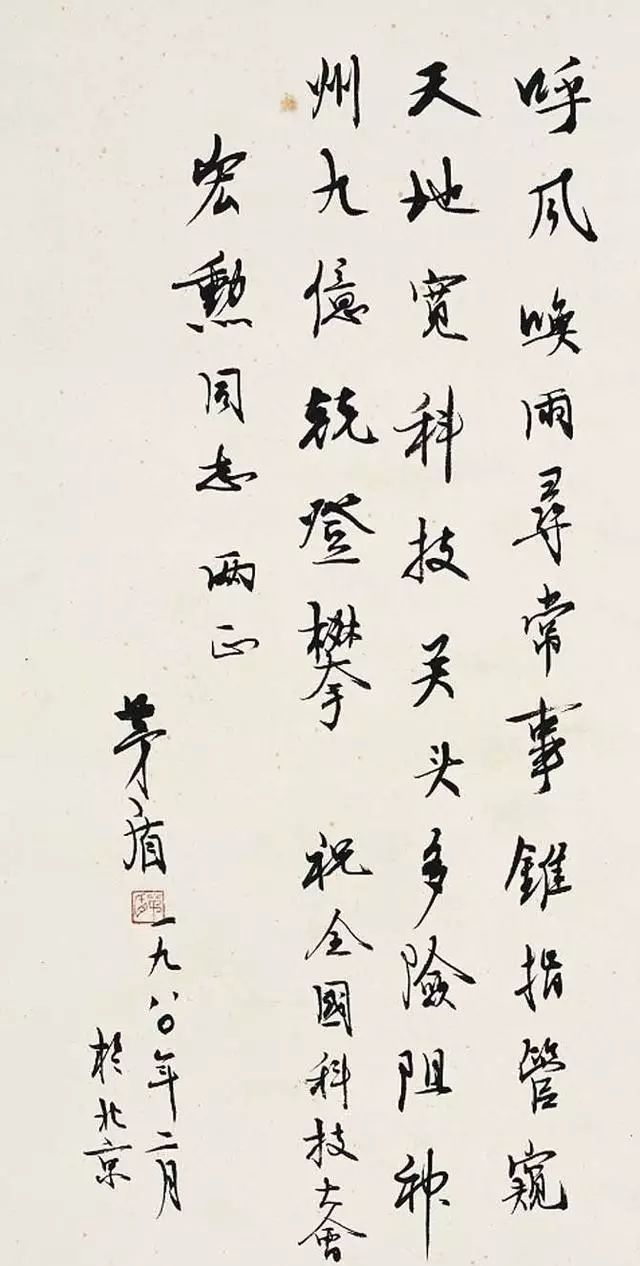 呼风唤雨尋常事錐指管窥
天地宽科技关头多險阻神
州九億兢登攀 祝全國科技大會
宏勳同志両正
茅盾 一九八〇年二月
於北京